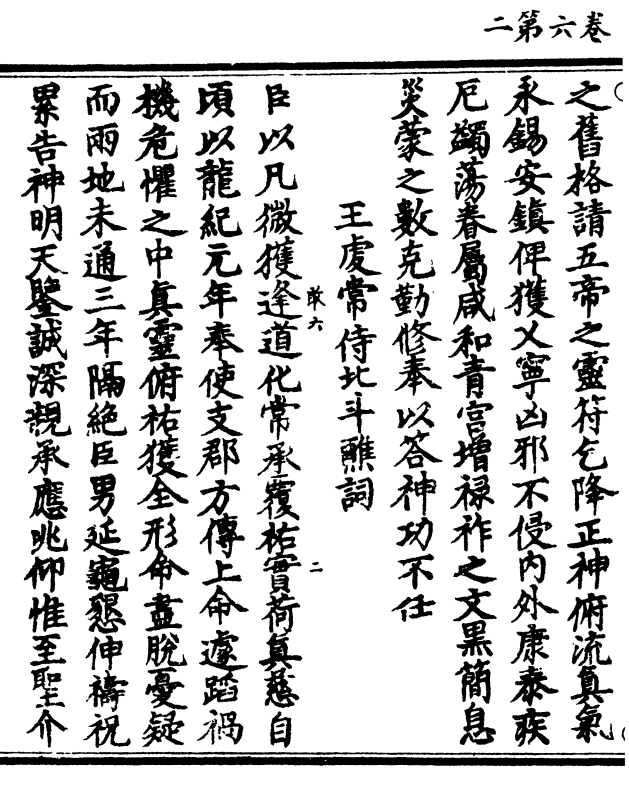 二第六卷
之舊格請五帝之靈符乞降正神俯流真氣
永錫安鎮俾獲乂寧凶邪不侵內外康泰疾
厄蠲蕩眷屬咸和青宮增祿祚之文黑簡息
災蒙之數克勤修奉以答神功不任
王虔常侍北斗醮詞
敢六
二
臣以凡微獲逢道化常承覆祐實荷真慈自
頃以龍紀元年奉使支郡方傳上命遽蹈禍
機危懼之中真靈俯祐獲全形命盡脫憂疑
而兩地未通三年隔絕臣男延龜懇伸禱祝
累告神明天鑒誠深親承應兆仰惟至聖介